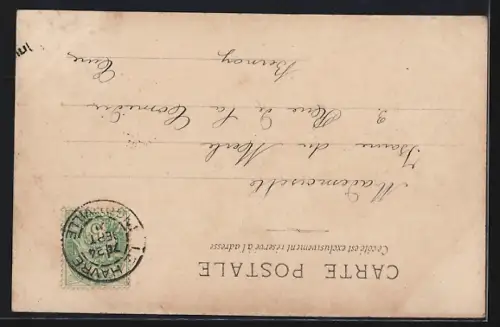 CARTE POSTALE
Ce côté est exclusivement réservé à l'adresse
Mademoiselle
du Merle
9. Rue de la Comédie
Bernay
Eure
LE HAVRE
24
SEPT